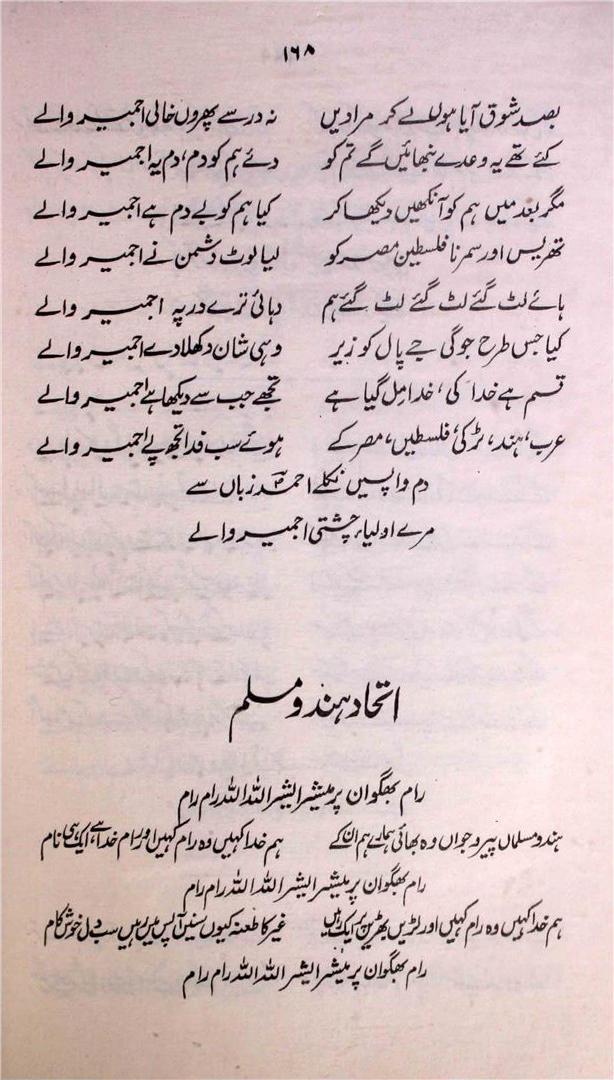 ۱۶۸
بصد شوق آیا ہوں لے کر مرادیں نہ در سے پھروں خالی اجمیر والے
کئے تھے یہ وعدے نبھائیں گے تم کو دئے ہم کو دم، دم یہ اجمیر والے
مگر بعد میں ہم کو آنکھیں دیکھا کر کیا ہم کو بے دم ہے اجمیر والے
تھریس اور سمرنا فلسطین مصر کو لیا لوٹ دشمن نے اجمیر والے
ہائے لٹ گئے لٹ گئے لٹ گئے ہم دہائی ترے در پہ اجمیر والے
کیا جس طرح جوگی جے پال کو زیر وہی شان دکھلا دے اجمیر والے
قسم ہے خدا کی، خدا مل گیا ہے تجھے جب سے دیکھا ہے اجمیر والے
عرب، ہند، ٹرکی، فلسطیں، مصر کے ہوئے سب فدا تجھ پہ اجمیر والے
دم واپسیں نکلے احمد زباں سے
مرے اولیاء چشتی اجمیر والے
اتحاد ہندو مسلم
رام بھگوان پرمیشر ایشر اللہ اللہ رام رام
ہندو مسلماں پیر و جواں وہ بھائی ہمارے ہم ان کے ہم خدا کہیں وہ رام کہیں اور رام خدا ہے ایک ہی نام
رام بھگوان پرمیشر ایشر اللہ اللہ رام رام
ہم خدا کہیں وہ رام کہیں اور لڑیں بھڑیں ایک ہیں غیر کا طعنہ کیوں سنیں آپس میں رہیں سب دل خوش کام
رام بھگوان پرمیشر ایشر اللہ اللہ رام رام